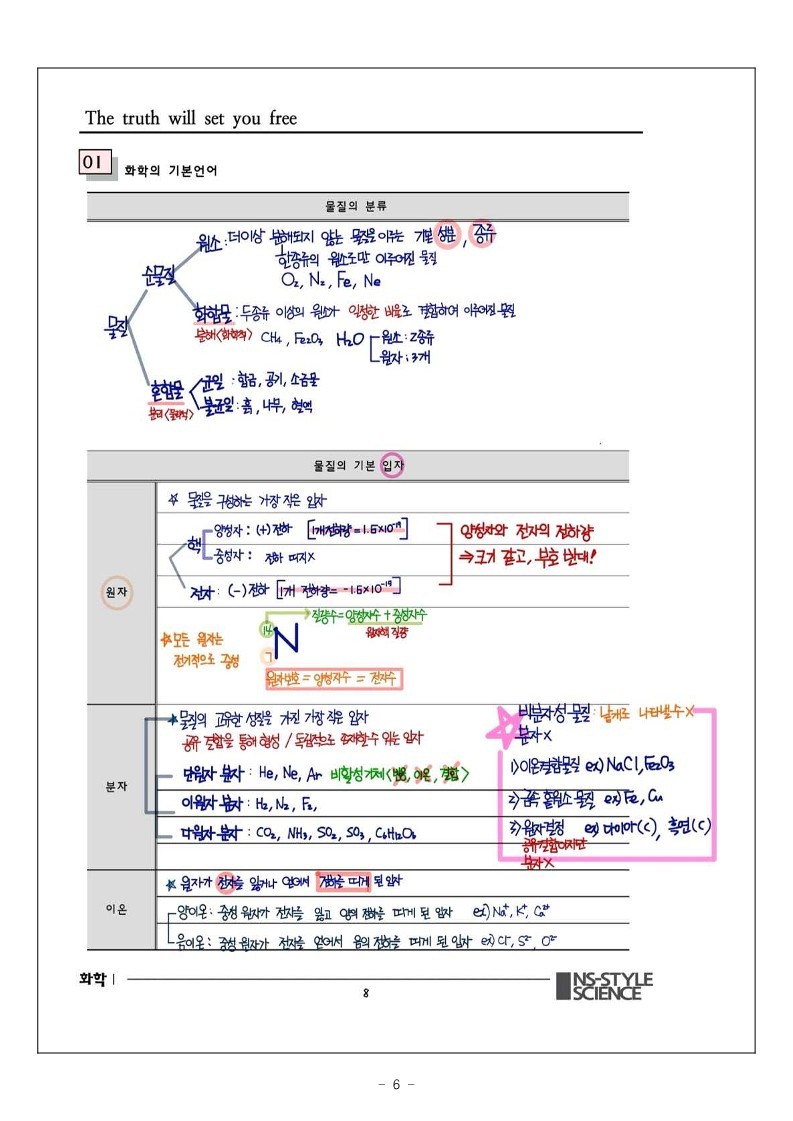 The truth will set you free
01 화학의 기본언어
물질의 분류
물질
순물질
원소 : 더이상 분해되지 않는 물질을 이루는 기본 성분, 종류
한종류의 원소로만 이루어진 물질
O₂, N₂, Fe, Ne
화합물 : 두종류 이상의 원소가 일정한 비율로 결합하여 이루어진 물질
분해<화학적> CH₄, Fe₂O₃ H₂O
원소 : 2종류
원자 : 3개
혼합물
분리<물리적>
균일 : 합금, 공기, 소금물
불균일 : 흙, 나무, 혈액
물질의 기본 입자
원자
☆ 물질을 구성하는 가장 작은 입자
핵
양성자 : (+)전하 [1개전하량 = 1.6×10⁻¹⁹]
중성자 : 전하 띠지X
전자 : (-)전하 [1개 전하량 = -1.6×10⁻¹⁹]
양성자와 전자의 전하량
⇒ 크기 같고, 부호 반대!
★모든 원자는
전기적으로 중성
14
7
N
질량수 = 양성자수 + 중성자수
원자핵 질량
원자번호 = 양성자수 = 전자수
분자
★물질의 고유한 성질을 가진 가장 작은 입자
공유 결합을 통해 형성 / 독립적으로 존재할수 있는 입자
단원자 분자 : He, Ne, Ar 비활성기체<반응, 이온, 결합>
이원자 분자 : H₂, N₂, F₂,
다원자 분자 : CO₂, NH₃, SO₂, SO₃, C₆H₁₂O₆
비분자성 물질 : 낱개로 나타낼수X
분자X
1) 이온결합물질 ex) NaCl, Fe₂O₃
2) 금속 홑원소 물질 ex) Fe, Cu
3) 원자결정 ex) 다이아(C), 흑연(C)
공유결합이지만
분자X
이온
★ 원자가 전자를 잃거나 얻어서 전하를 띠게 된 입자
양이온 : 중성 원자가 전자를 잃고 양의 전하를 띠게 된 입자 ex) Na⁺, K⁺, Ca²⁺
음이온 : 중성 원자가 전자를 얻어서 음의 전하를 띠게 된 입자 ex) Cl⁻, S²⁻, O²⁻
화학 I
8
NS-STYLE
SCIENCE
- 6 -